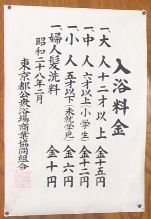 入浴料金
一、大人 十二才以上 金十五円
一、中人 六才以上小学生 金十二円
一、小人 五才以下(未就学児) 金六円
一、婦人髪洗料 金十円
昭和二十八年二月
東京都公衆浴場商業協同組合